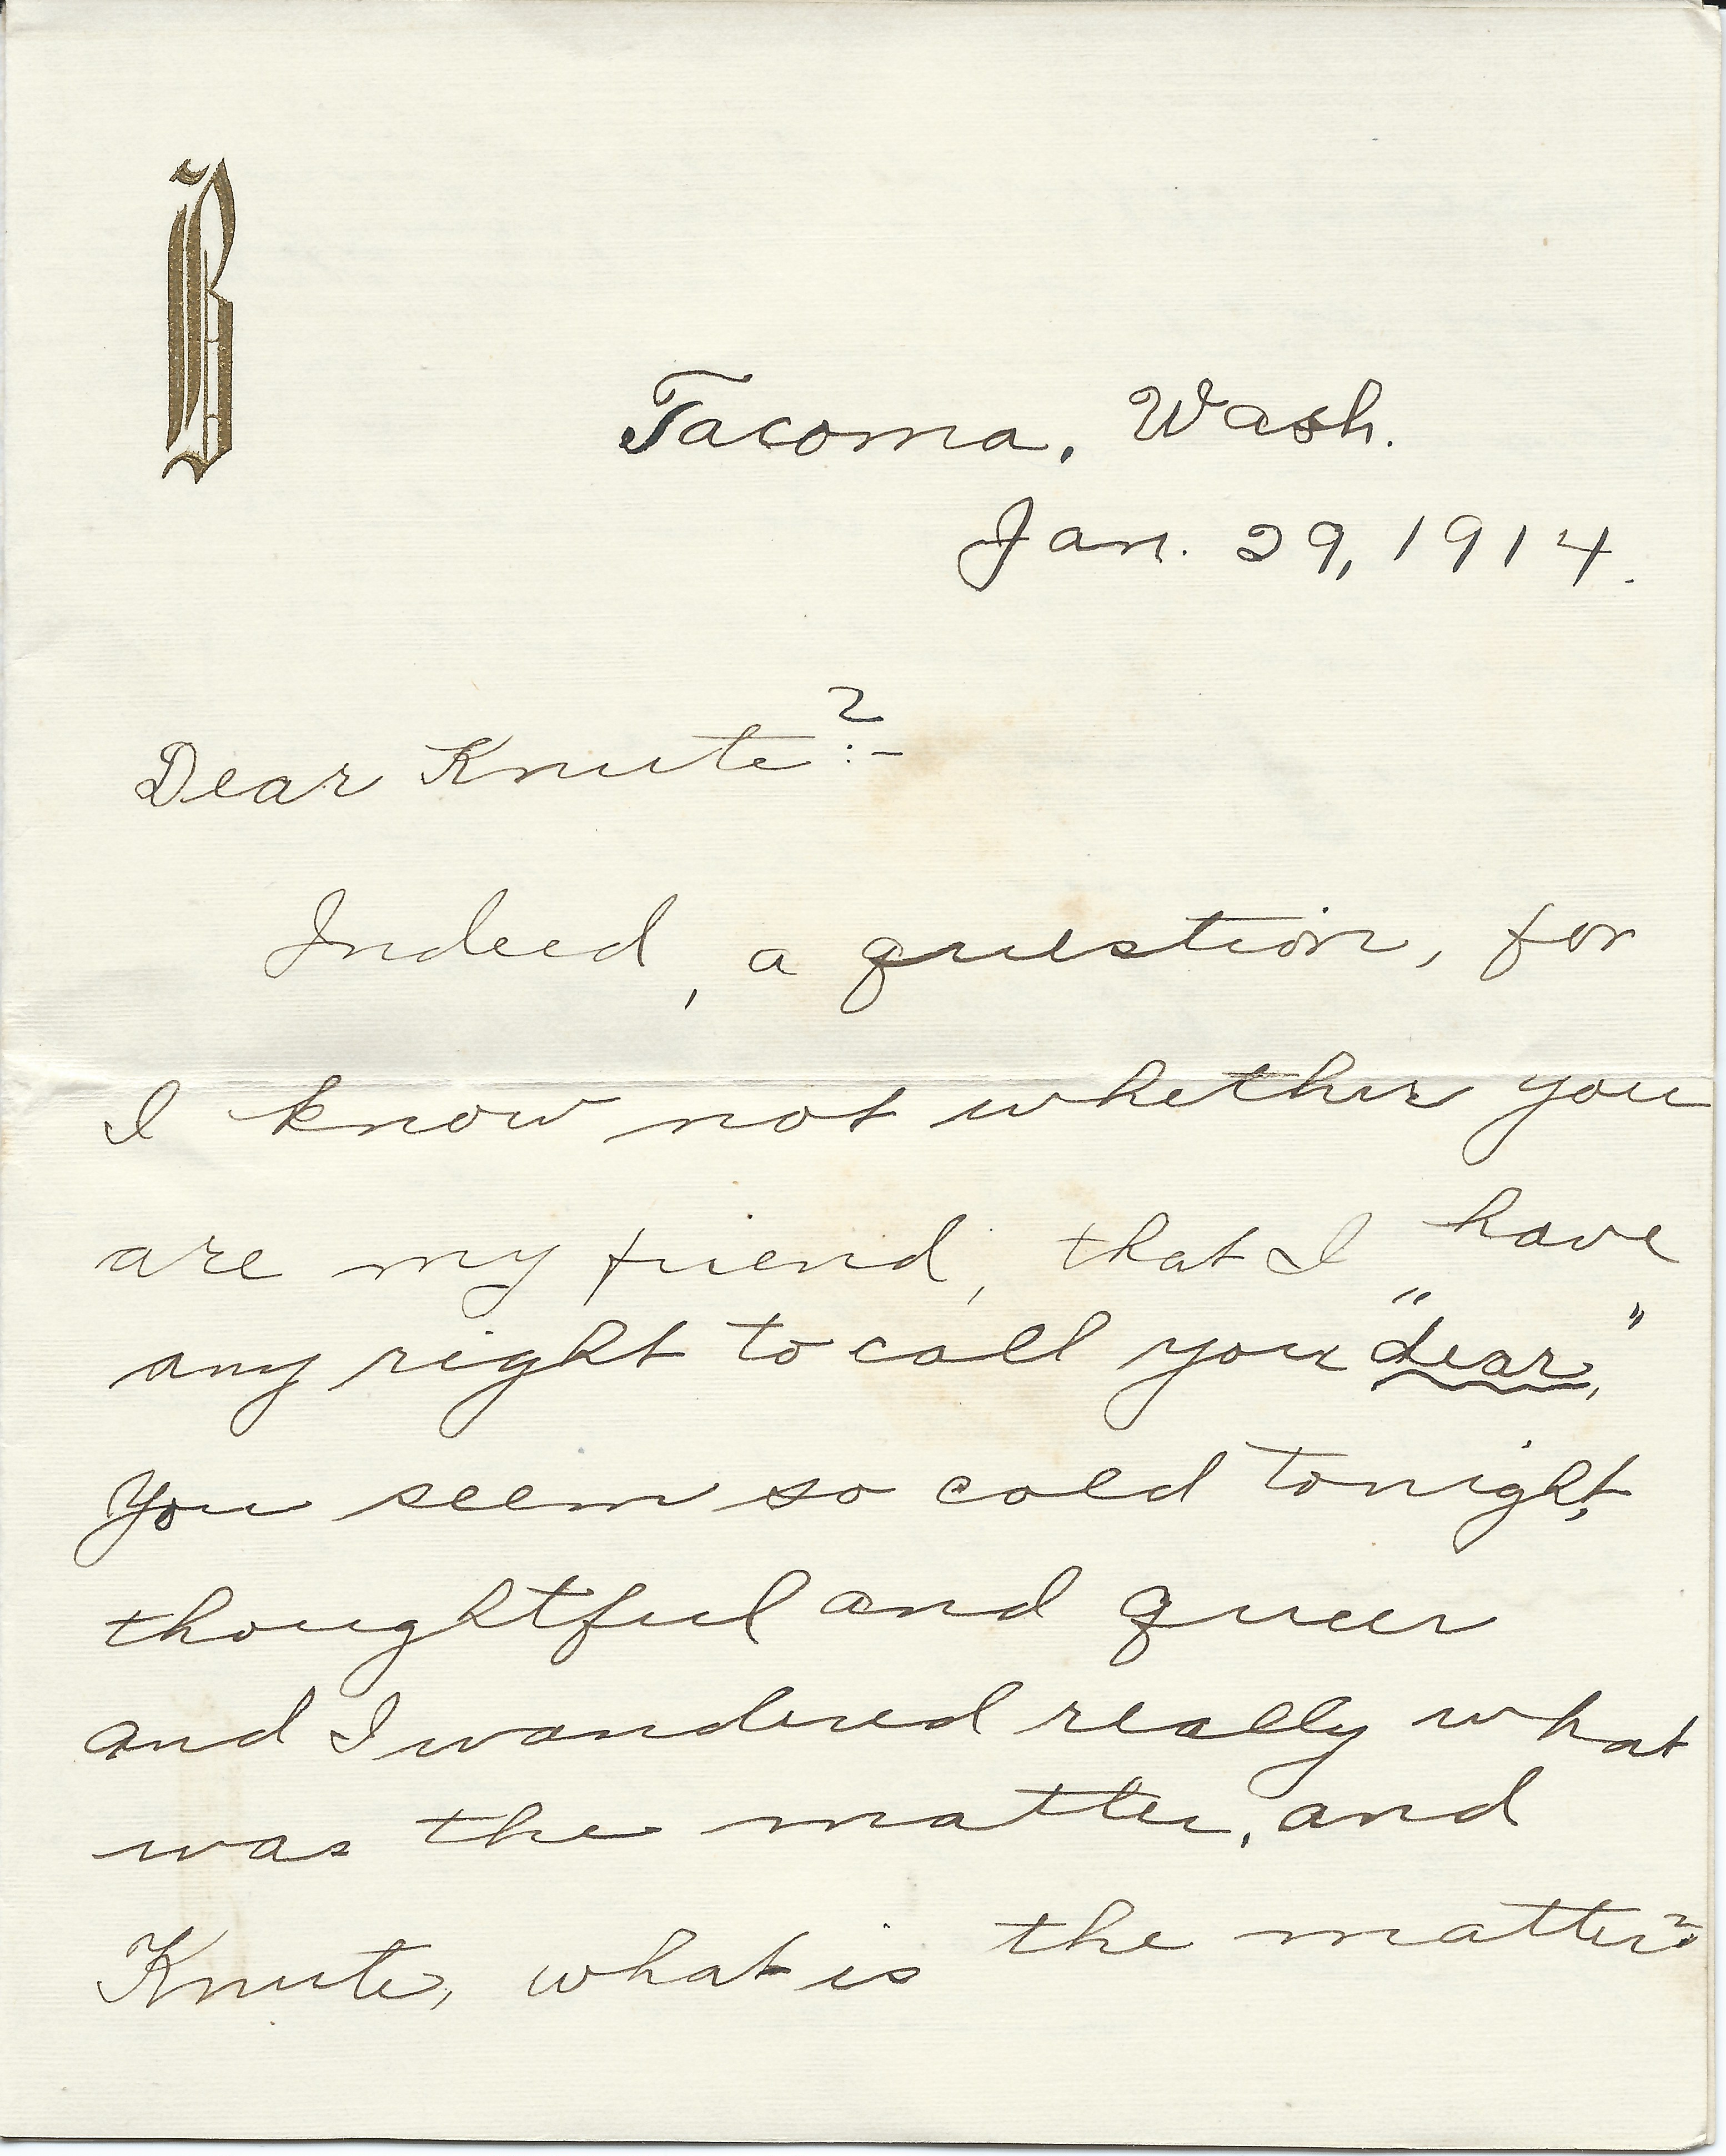 B
Tacoma, Wash.
Jan. 29, 1914.
Dear Knute?:-
Indeed, a question, for
I know not whether you
are my friend, that I have
any right to call you "dear."
You seem so cold tonight,
thoughtful and queer
and I wondered really what
was the matter, and
Knute, what is the matter?